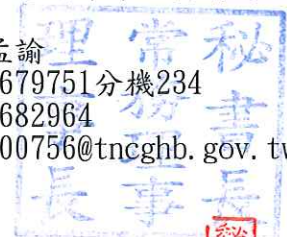 孟諭
679751分機234
682964
00756@tncghb.gov.tw
秘書長
常務理事
理事長
秘